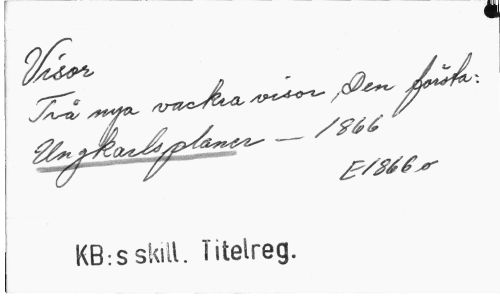 Visor
Två nya vackra visor, Den första:
Ungkarlsplaner — 1866
E1866 o
KB:s skill. Titelreg.